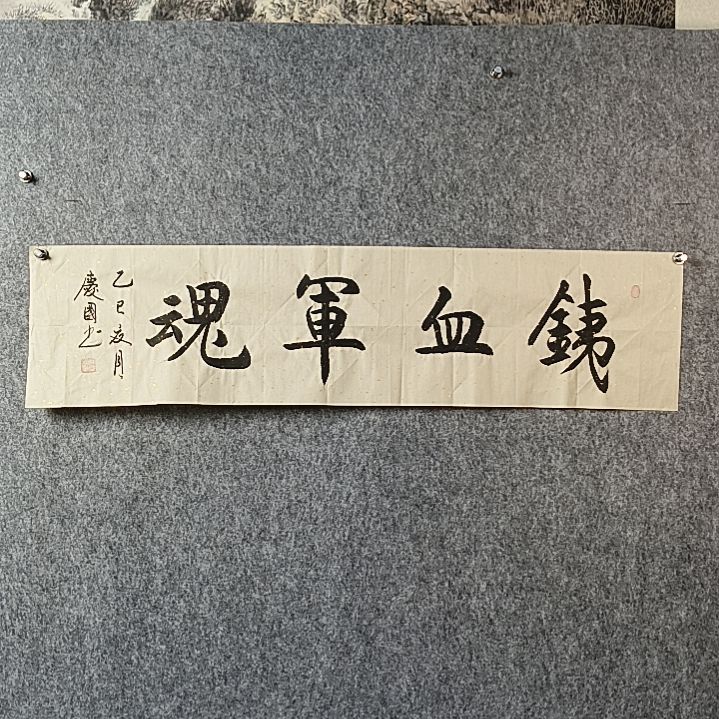 銕血軍魂
乙巳夏月
慶國书